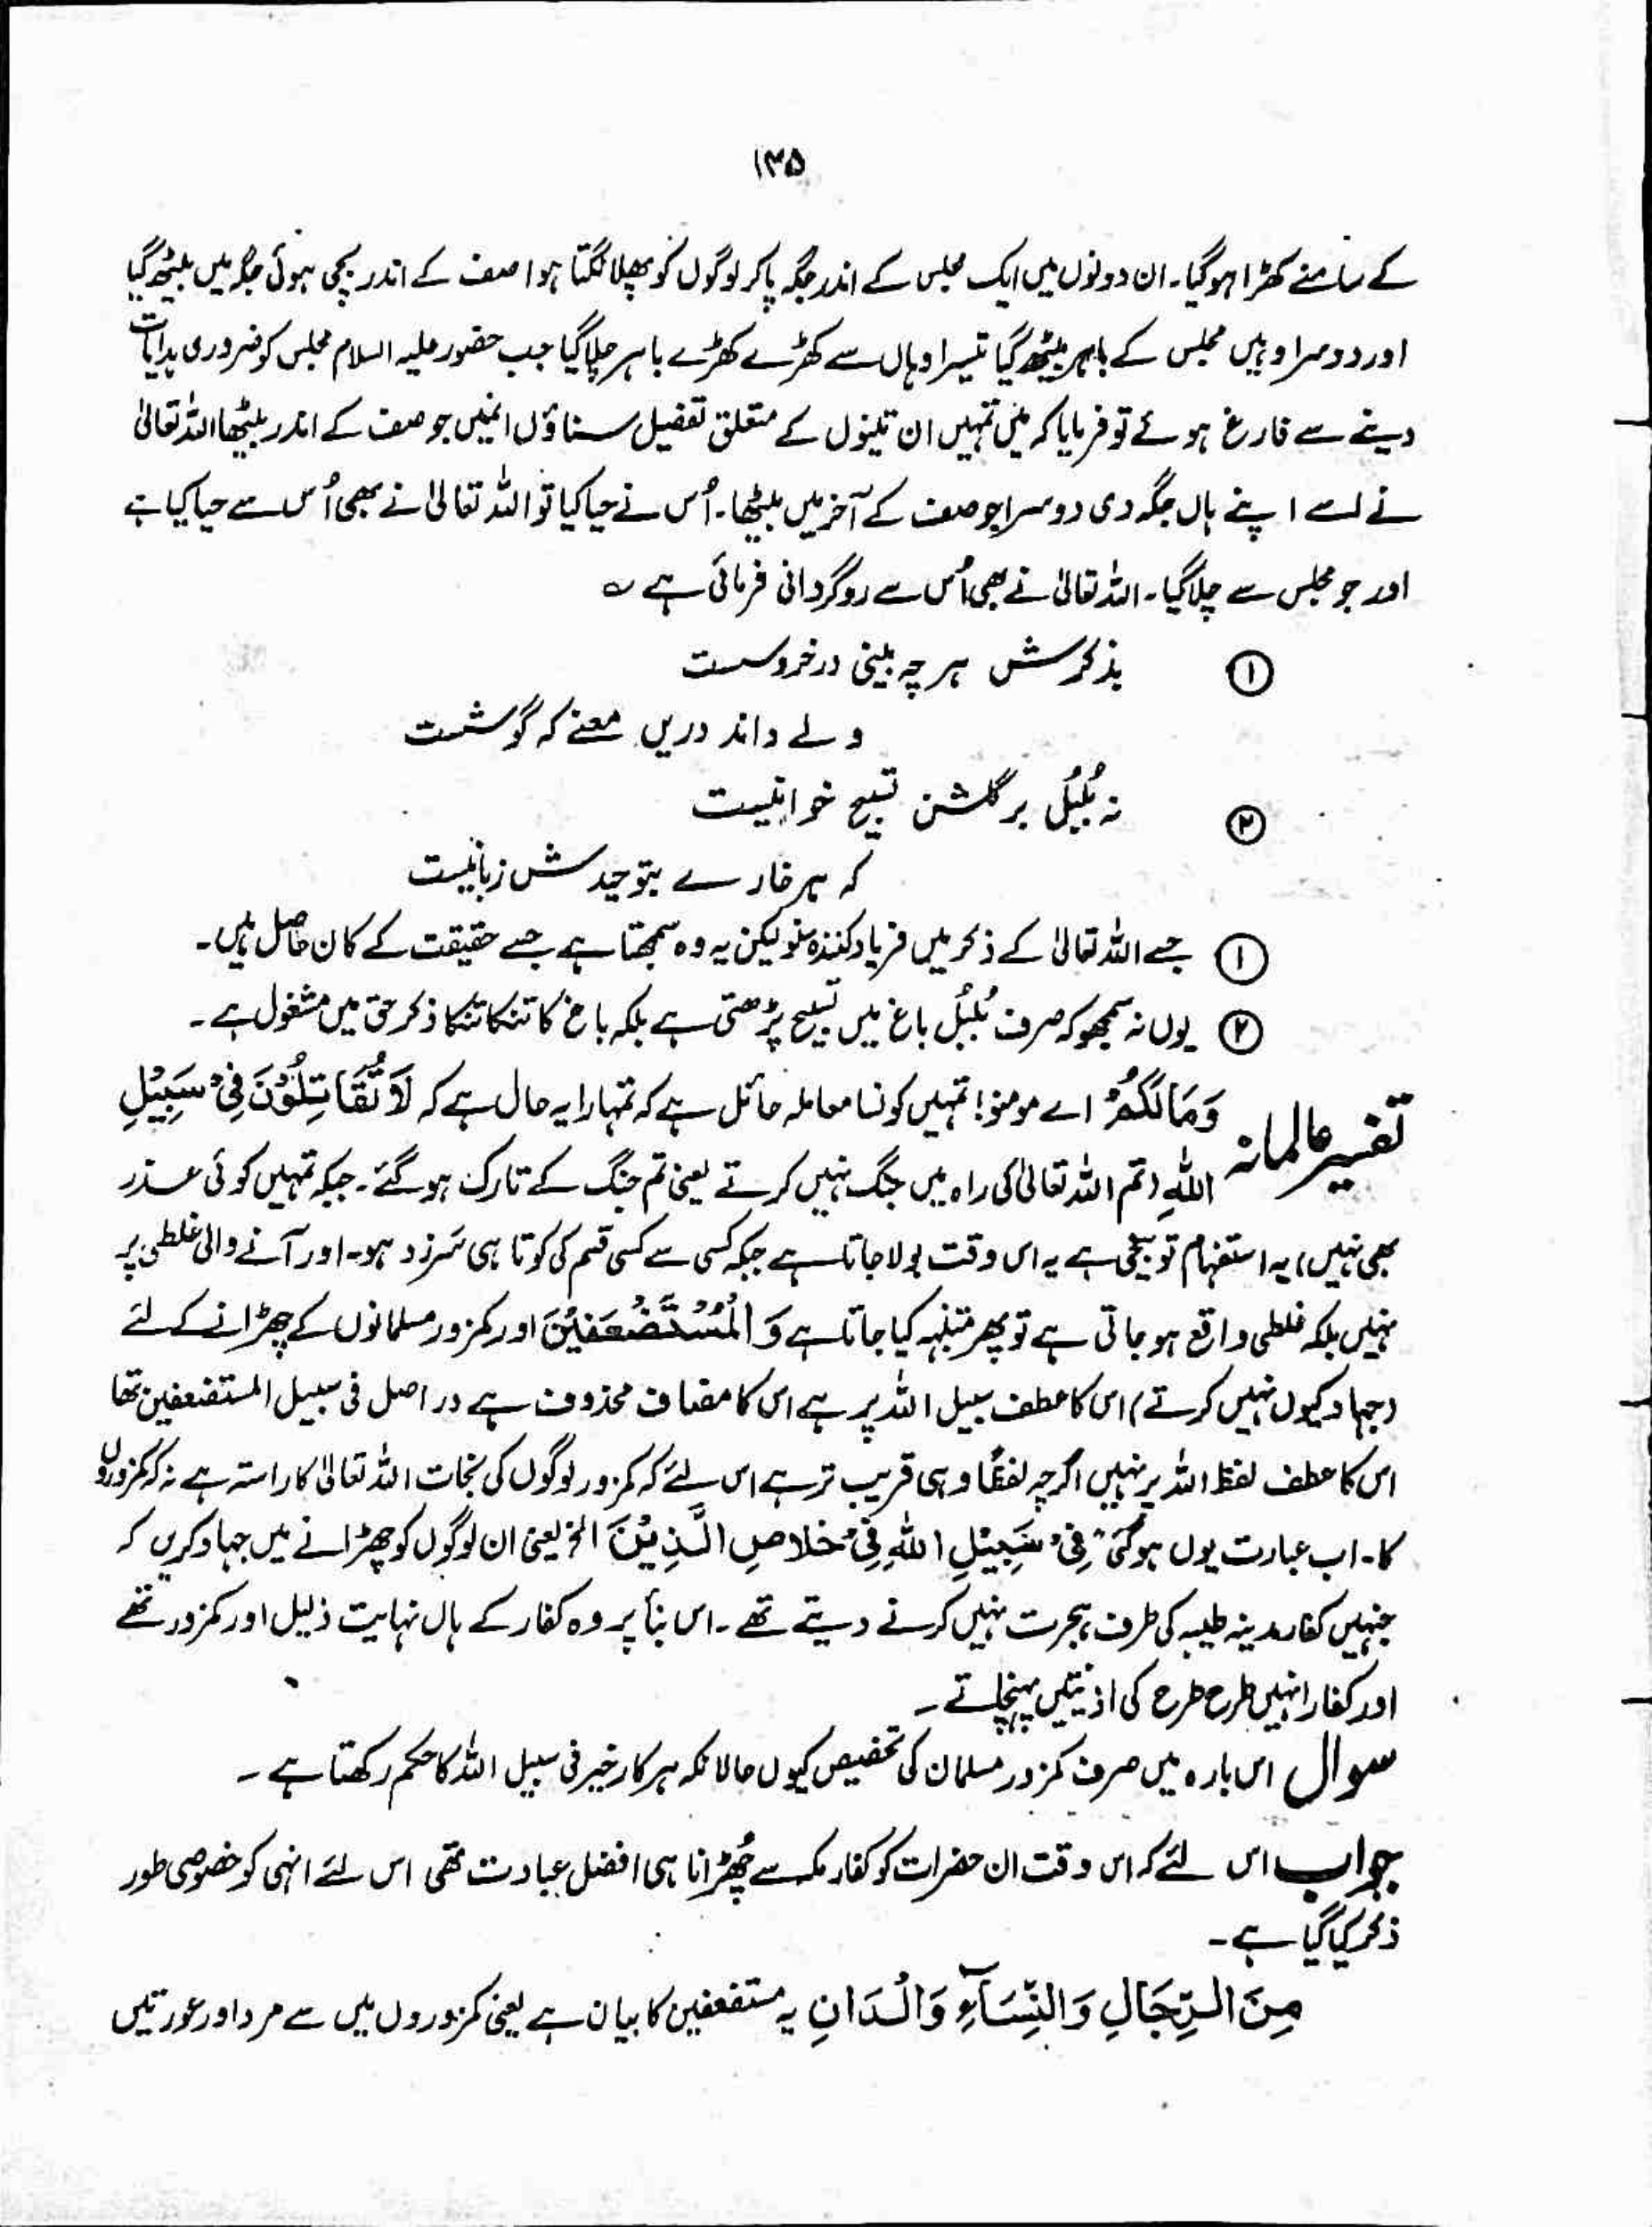 ۱۳۵
کے سامنے کھڑا ہوگیا۔ ان دونوں میں ایک مجلس کے اندر جگہ پاکر لوگوں کو پھلانگتا ہوا صف کے اندر بچی ہوئی جگہ میں بیٹھ گیا
اور دوسرا وہیں مجلس کے باہر بیٹھ گیا تیسرا وہاں سے کھڑے کھڑے باہر چلا گیا جب حضور علیہ السلام مجلس کو ضروری ہدایات
دینے سے فارغ ہوئے تو فرمایا کہ میں تمہیں ان تینوں کے متعلق تفصیل سناؤں انہیں جو صف کے اندر بیٹھا اللہ تعالیٰ
نے اسے اپنے ہاں جگہ دی دوسرا جو صف کے آخر میں بیٹھا۔ اُس نے حیا کیا تو اللہ تعالیٰ نے بھی اُس سے حیا کیا ہے
اور جو مجلس سے چلا گیا۔ اللہ تعالیٰ نے بھی اُس سے روگردانی فرمائی ہے ؎
① بذکرش ہر چہ بینی درخروست
ولے داند دریں معنے کہ گوشت
② نہ بُلبُل بر گلشن تسبیح خوانیست
کہ ہر خارے بتوحیدش زبانیست
① جسے اللہ تعالیٰ کے ذکر میں فریاد کنندہ سنو لیکن یہ وہ سمجھتا ہے جسے حقیقت کے کان حاصل ہیں۔
② یوں نہ سمجھو کہ صرف بُلبُل باغ میں تسبیح پڑھتی ہے بلکہ باغ کا تنکا تنکا ذکر حق میں مشغول ہے۔
تفسیر عالمانہ وَمَالَکُمْ اے مومنو! تمہیں کونسا معاملہ حائل ہے کہ تمہارا یہ حال ہے کہ لَاتُقَاتِلُوْنَ فِیْ سَبِیْلِ
اللہِ (تم اللہ تعالیٰ کی راہ میں جنگ نہیں کرتے یعنی تم جنگ کے تارک ہوگئے۔ جبکہ تمہیں کوئی عذر
بھی نہیں) یہ استفہام توبیخی ہے یہ اس وقت بولا جاتا ہے جبکہ کسی سے کسی قسم کی کوتاہی سَرزد ہو۔ اور آنے والی غلطی پر
نہیں بلکہ غلطی واقع ہو جاتی ہے تو پھر متنبہ کیا جاتا ہے وَ الْمُسْتَضْعَفِیْنَ اور کمزور مسلمانوں کے چھڑانے کے لئے
(جہاد کیوں نہیں کرتے) اس کا عطف سبیل اللہ پر ہے اس کا مضاف محذوف ہے در اصل فی سبیل المستضعفین تھا
اس کا عطف لفظ اللہ پر نہیں اگرچہ لفظًا وہی قریب تر ہے اس لئے کہ کمزور لوگوں کی نجات اللہ تعالیٰ کا راستہ ہے نہ کہ کمزوروں
کا۔ اب عبارت یوں ہوگئی "فِیْ سَبِیْلِ اللہِ فِیْ خلاصِ الَّذِیْنَ الخ یعنی ان لوگوں کو چھڑانے میں جہاد کریں کہ
جنہیں کفار مدینہ طیبہ کی طرف ہجرت نہیں کرنے دیتے تھے۔ اس بنأ پر وہ کفار کے ہاں نہایت ذلیل اور کمزور تھے
اور کفار انہیں طرح طرح کی اذیتیں پہنچاتے۔
سوال اس بارہ میں صرف کمزور مسلمان کی تخصیص کیوں حالانکہ ہر کارِ خیر فی سبیل اللہ کا حکم رکھتا ہے۔
جواب اس لئے کہ اس وقت ان حضرات کو کفار مکہ سے چُھڑانا ہی افضل عبادت تھی اس لئے انہی کو خصوصی طور
ذکر کیا گیا ہے۔
مِنَ الرِّجَالِ وَالنِّسَآءِ وَالْدَانِ یہ مستضعفین کا بیان ہے یعنی کمزوروں میں سے مرد اور عورتیں